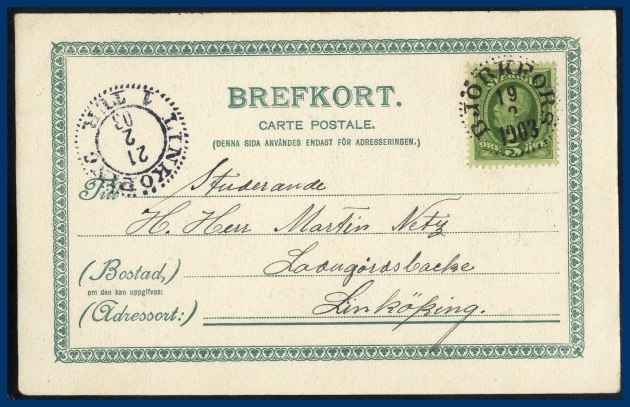 BREFKORT.
CARTE POSTALE.
(DENNA SIDA ANVÄNDES ENDAST FÖR ADRESSERINGEN.)
BJÖRKFORS
19
1903
5 ÖRE
LINKÖPING
21
2
03
1 TTR
Till
Studerande
H. Herr Martin Netz
Ladugårdsbacke
(Bostad,)
om den kan uppgifvas:
(Adressort:)
Linköping.